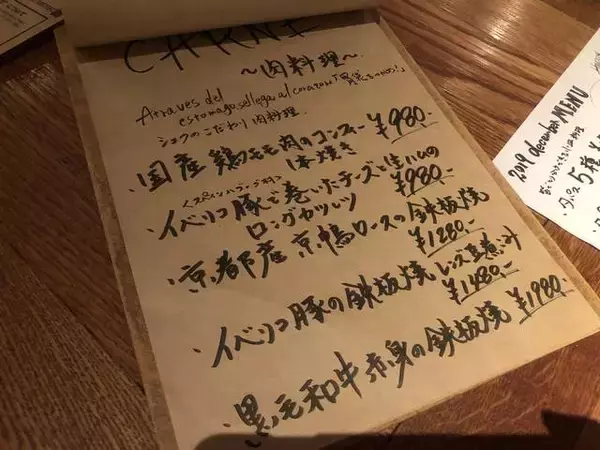 CARNE
～肉料理～
Atraves del
estomago se llega al corazon「胃袋をつかめ!」
シェフのこだわり肉料理
・国産鶏もも肉のコンフィー ¥980-
1本焼き
・イベリコ豚で巻いたチーズと生ハムの
ロングカツレツ ¥980-
・京都産京鴨ロースの鉄板焼 ¥1280-
・イベリコ豚の鉄板焼 レンズ豆煮込み ¥1480-
・黒毛和牛赤身の鉄板焼 ¥1980-
2019 december MENU